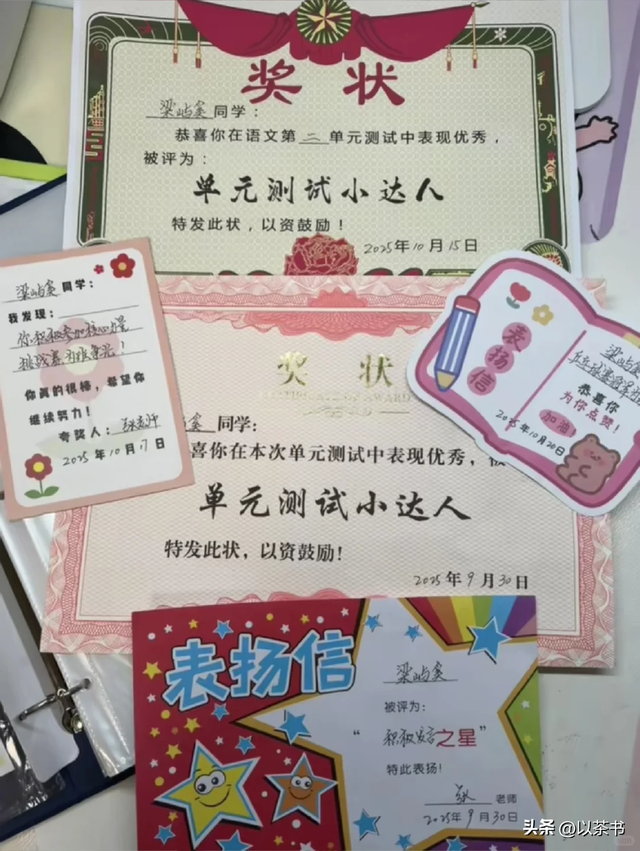 奖状
梁屿奚同学：
恭喜你在语文第二单元测试中表现优秀，
被评为：
单元测试小达人
特发此状，以资鼓励！
2025年10月15日
梁屿奚同学：
我发现：
你积极参加
挑战赛为班争光！
你真的很棒，希望你
继续努力！
夸奖人：
2025年10月17日
表扬信
梁屿奚
恭喜你
为你点赞！
加油！
2025年10月20日
奖状
CERTIFICATE OF AWARD
同学：
喜你在本次单元测试中表现优秀，被
单元测试小达人
特发此状，以资鼓励！
2025年9月30日
表扬信
梁屿奚
被评为：
“积极发言之星”
特此表扬！
张老师
2025年9月30日
头条 @以茶书